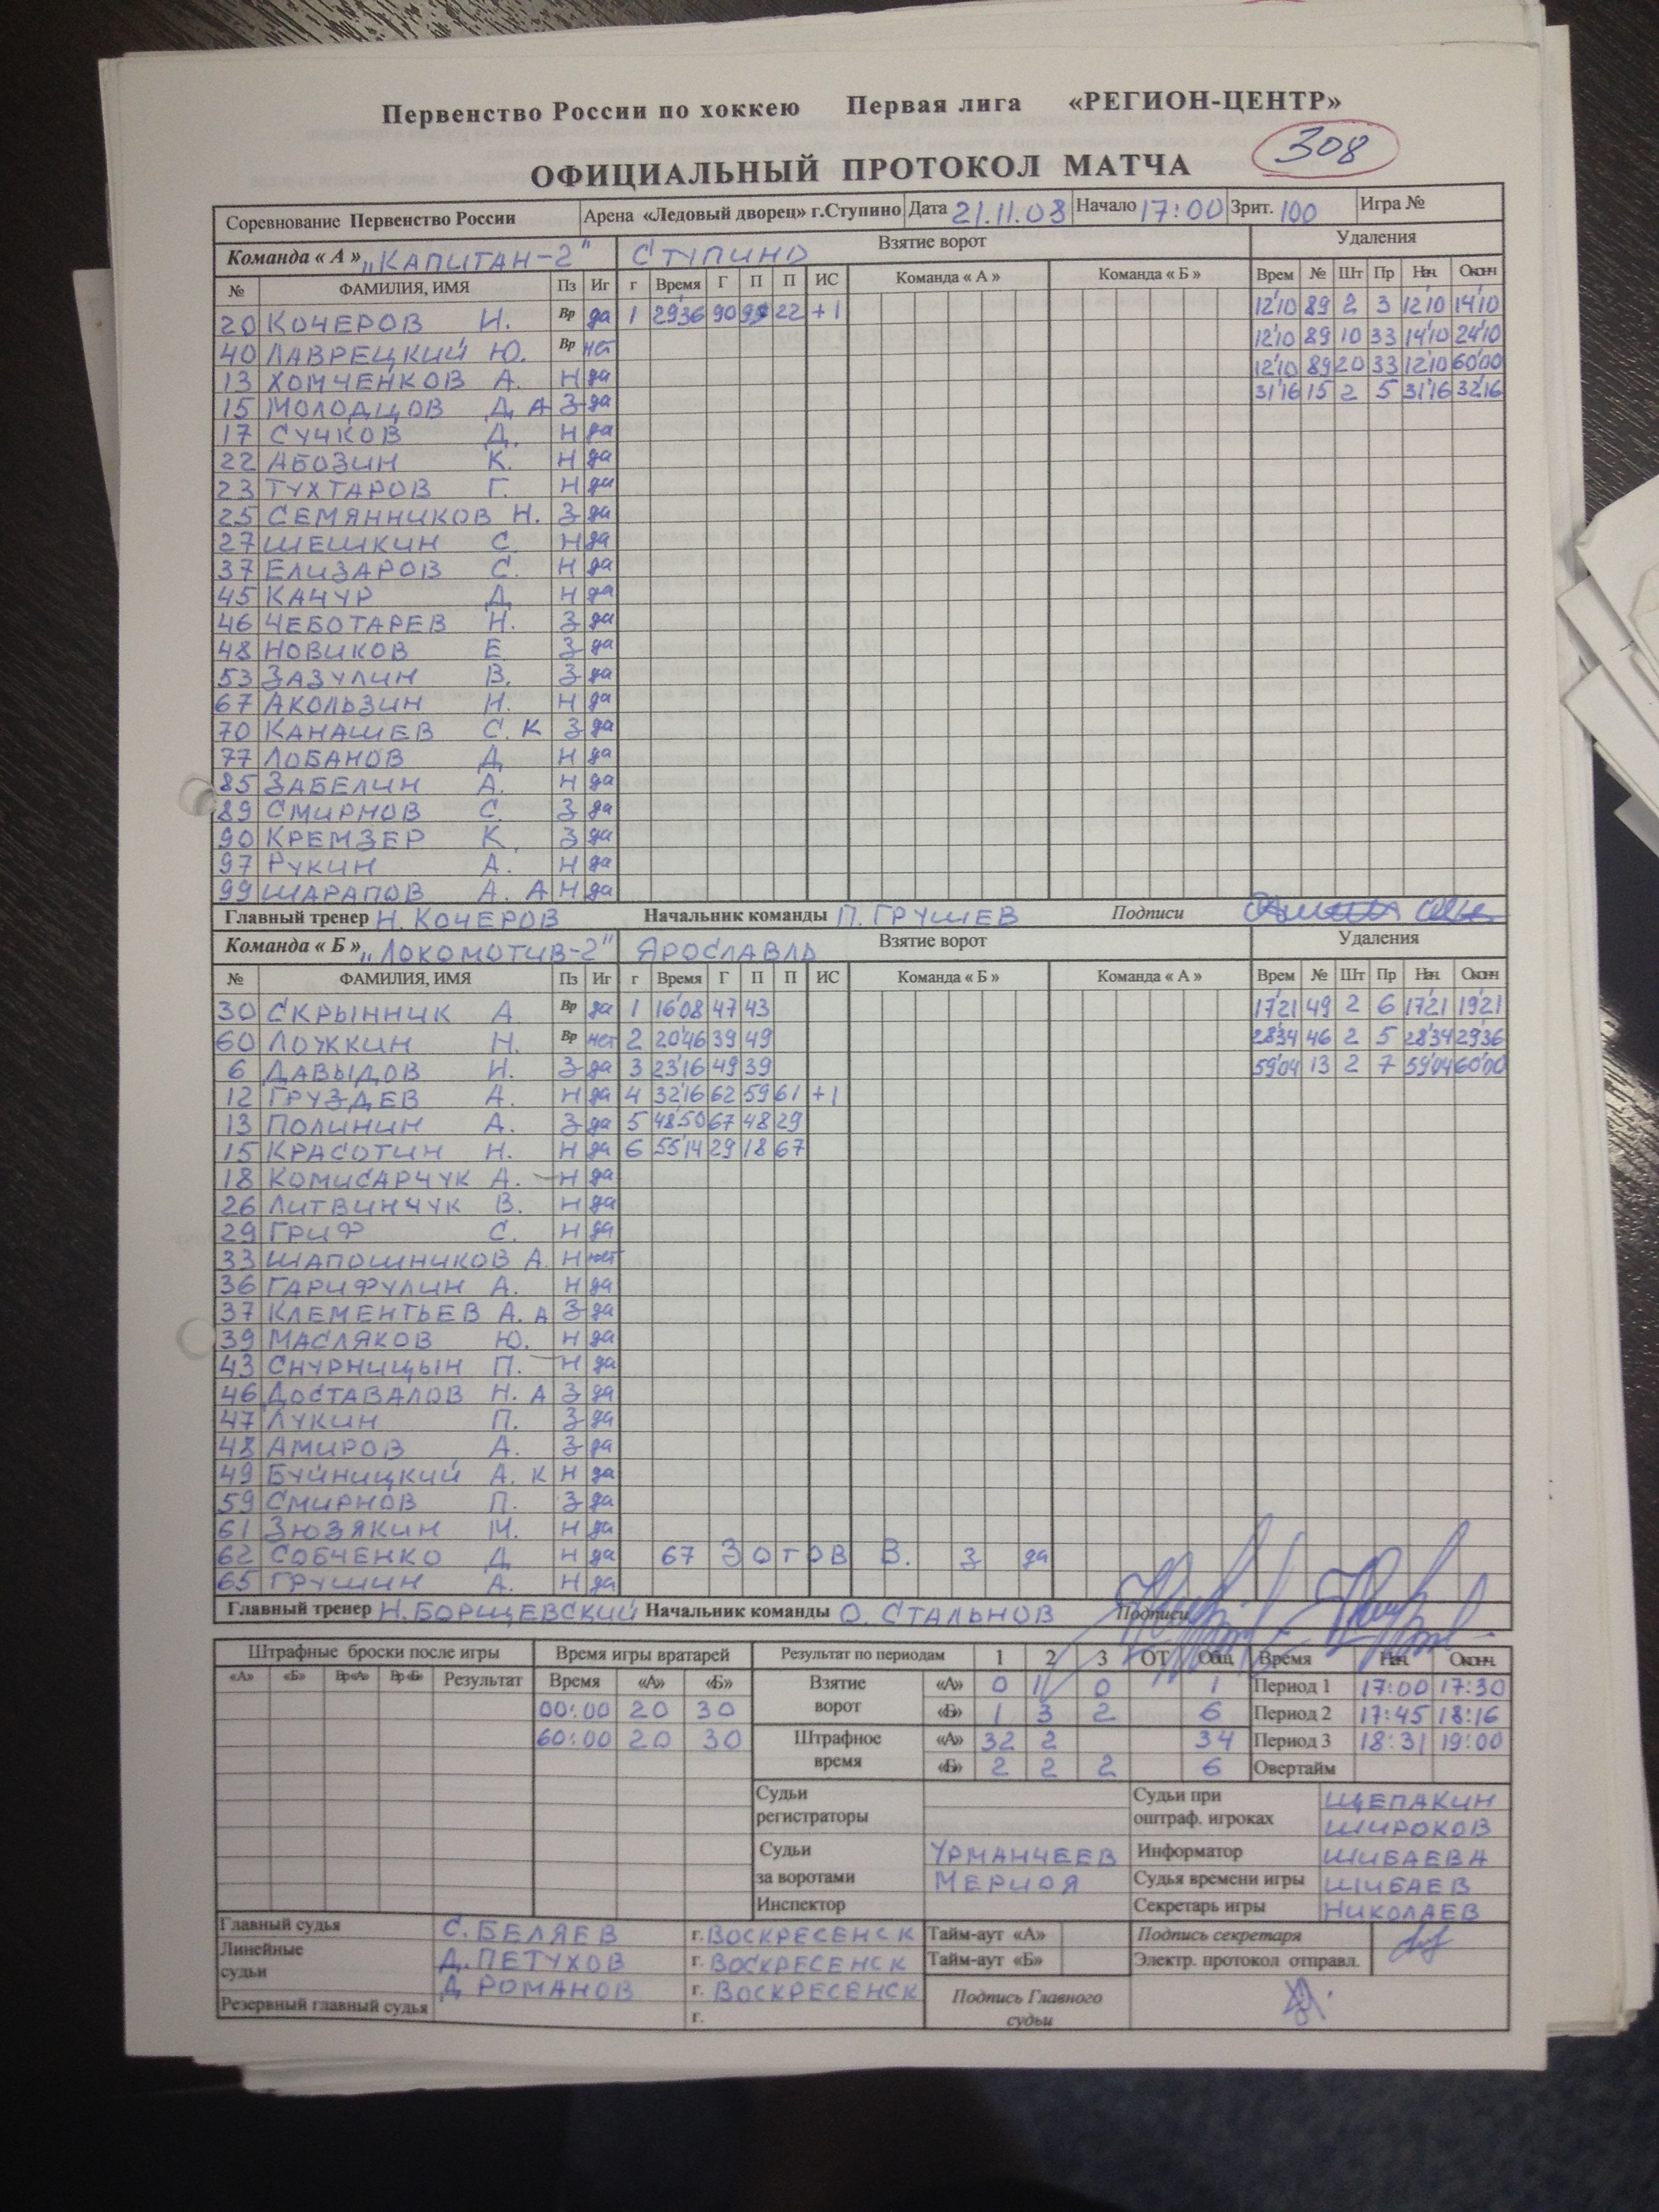 Первенство России по хоккею Первая лига «РЕГИОН-ЦЕНТР»
308
ОФИЦИАЛЬНЫЙ ПРОТОКОЛ МАТЧА
Соревнование Первенство России Арена «Ледовый дворец» г.Ступино Дата 21.11.08 Начало 17:00 Зрит. 100 Игра №
Команда « А » „КАПИТАН-2" СТУПИНО Взятие ворот Удаления
№ ФАМИЛИЯ, ИМЯ Пз Иг г Время Г П П ИС Команда « А » Команда « Б » Врем № Шт Пр Нач. Оконч
20 КОЧЕРОВ Н. Вр да 1 29'36 90 99 22 +1 12'10 89 2 3 12'10 14'10
40 ЛАВРЕЦКИЙ Ю. Вр нет 12'10 89 10 33 14'10 24'10
13 ХОМЧЕНКОВ А. Н да 12'10 89 20 33 12'10 60'00
15 МОЛОДЦОВ Д. А З да 31'16 15 2 5 31'16 32'16
17 СУЧКОВ Д. Н да
22 АБОЗИН К. Н да
23 ТУХТАРОВ Г. Н да
25 СЕМЯННИКОВ Н. З да
27 ШЕШКИН С. Н да
37 ЕЛИЗАРОВ С. Н да
45 КАЧУР Д. Н да
46 ЧЕБОТАРЕВ Н. З да
48 НОВИКОВ Е З да
53 ЗАЗУЛИН В. З да
67 АКОЛЬЗИН Н. Н да
70 КАНАШЕВ С. К З да
77 ЛОБАНОВ Д Н да
85 ЗАБЕЛИН А. Н да
89 СМИРНОВ С. З да
90 КРЕМЗЕР К. З да
97 РУКИН А. Н да
99 ШАРАПОВ А. А Н да
Главный тренер Н. КОЧЕРОВ Начальник команды П. ГРУШЕВ Подписи
Команда « Б » „ЛОКОМОТИВ-2" ЯРОСЛАВЛЬ Взятие ворот Удаления
№ ФАМИЛИЯ, ИМЯ Пз Иг г Время Г П П ИС Команда « Б » Команда « А » Врем № Шт Пр Нач. Оконч
30 СКРЫННИК А Вр да 1 16'08 47 43 17'21 49 2 6 17'21 19'21
60 ЛОЖКИН Н. Вр нет 2 20'46 39 49 28'34 46 2 5 28'34 29'36
6 ДАВЫДОВ Н. З да 3 23'16 49 39 59'04 13 2 7 59'04 60'00
12 ГРУЗДЕВ А. Н да 4 32'16 62 59 61 +1
13 ПОЛИНИН А. З да 5 48'50 67 48 29
15 КРАСОТИН Н. Н да 6 55'14 29 18 67
18 КОМИСАРЧУК А. Н да
26 ЛИТВИНЧУК В. Н да
29 ГРИФ С. Н да
33 ШАПОШНИКОВ А. Н нет
36 ГАРИФУЛИН А. Н да
37 КЛЕМЕНТЬЕВ А. А З да
39 МАСЛЯКОВ Ю. Н да
43 СНУРНИЦЫН П. Н да
46 ДОСТАВАЛОВ Н. А З да
47 ЛУКИН П. З да
48 АМИРОВ А. З да
49 БУЙНИЦКИЙ А. К Н да
59 СМИРНОВ П. З да
61 ЗЮЗЯКИН М. Н да
62 СОБЧЕНКО Д Н да 67 ЗОТОВ В. З да
65 ГРУШИН А. Н да
Главный тренер Н. БОРЩЕВСКИЙ Начальник команды О. СТАЛЬНОВ Подписи
Штрафные броски после игры Время игры вратарей Результат по периодам 1 2 3 ОТ Общ Время Нач. Оконч.
«А» «Б» Вр«А» Вр«Б» Результат Время «А» «Б» Взятие ворот «А» 0 1 0 1 Период 1 17:00 17:30
00:00 20 30 «Б» 1 3 2 6 Период 2 17:45 18:16
60:00 20 30 Штрафное время «А» 32 2 34 Период 3 18:31 19:00
«Б» 2 2 2 6 Овертайм
Судьи регистраторы Судьи при оштраф. игроках ЩЕПАКИН
ШИРОКОВ
Судьи за воротами УРМАНЧЕЕВ Информатор ШИБАЕВА
МЕРЦОЯ Судья времени игры ШИБАЕВ
Инспектор Секретарь игры НИКОЛАЕВ
Главный судья С. БЕЛЯЕВ г. ВОСКРЕСЕНСК Тайм-аут «А» Подпись секретаря
Линейные судьи Д. ПЕТУХОВ г. ВОСКРЕСЕНСК Тайм-аут «Б» Электр. протокол отправл.
Д РОМАНОВ г. ВОСКРЕСЕНСК Подпись Главного судьи
Резервный главный судья г.